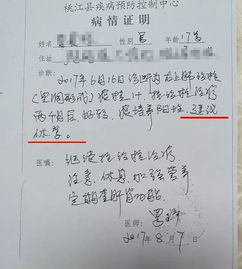 桃江县疾病预防控制中心
病情证明
姓名 性别 男 年龄 17岁
2017年6月16日诊断为右上肺结核
(空洞形成)痰检1+ 抗结核治疗
两个月后好转,痰培养阳性,建议
休学。
医嘱: 继续抗结核治疗
注意休息加强营养
定期查肝肾功能
2017年8月7日